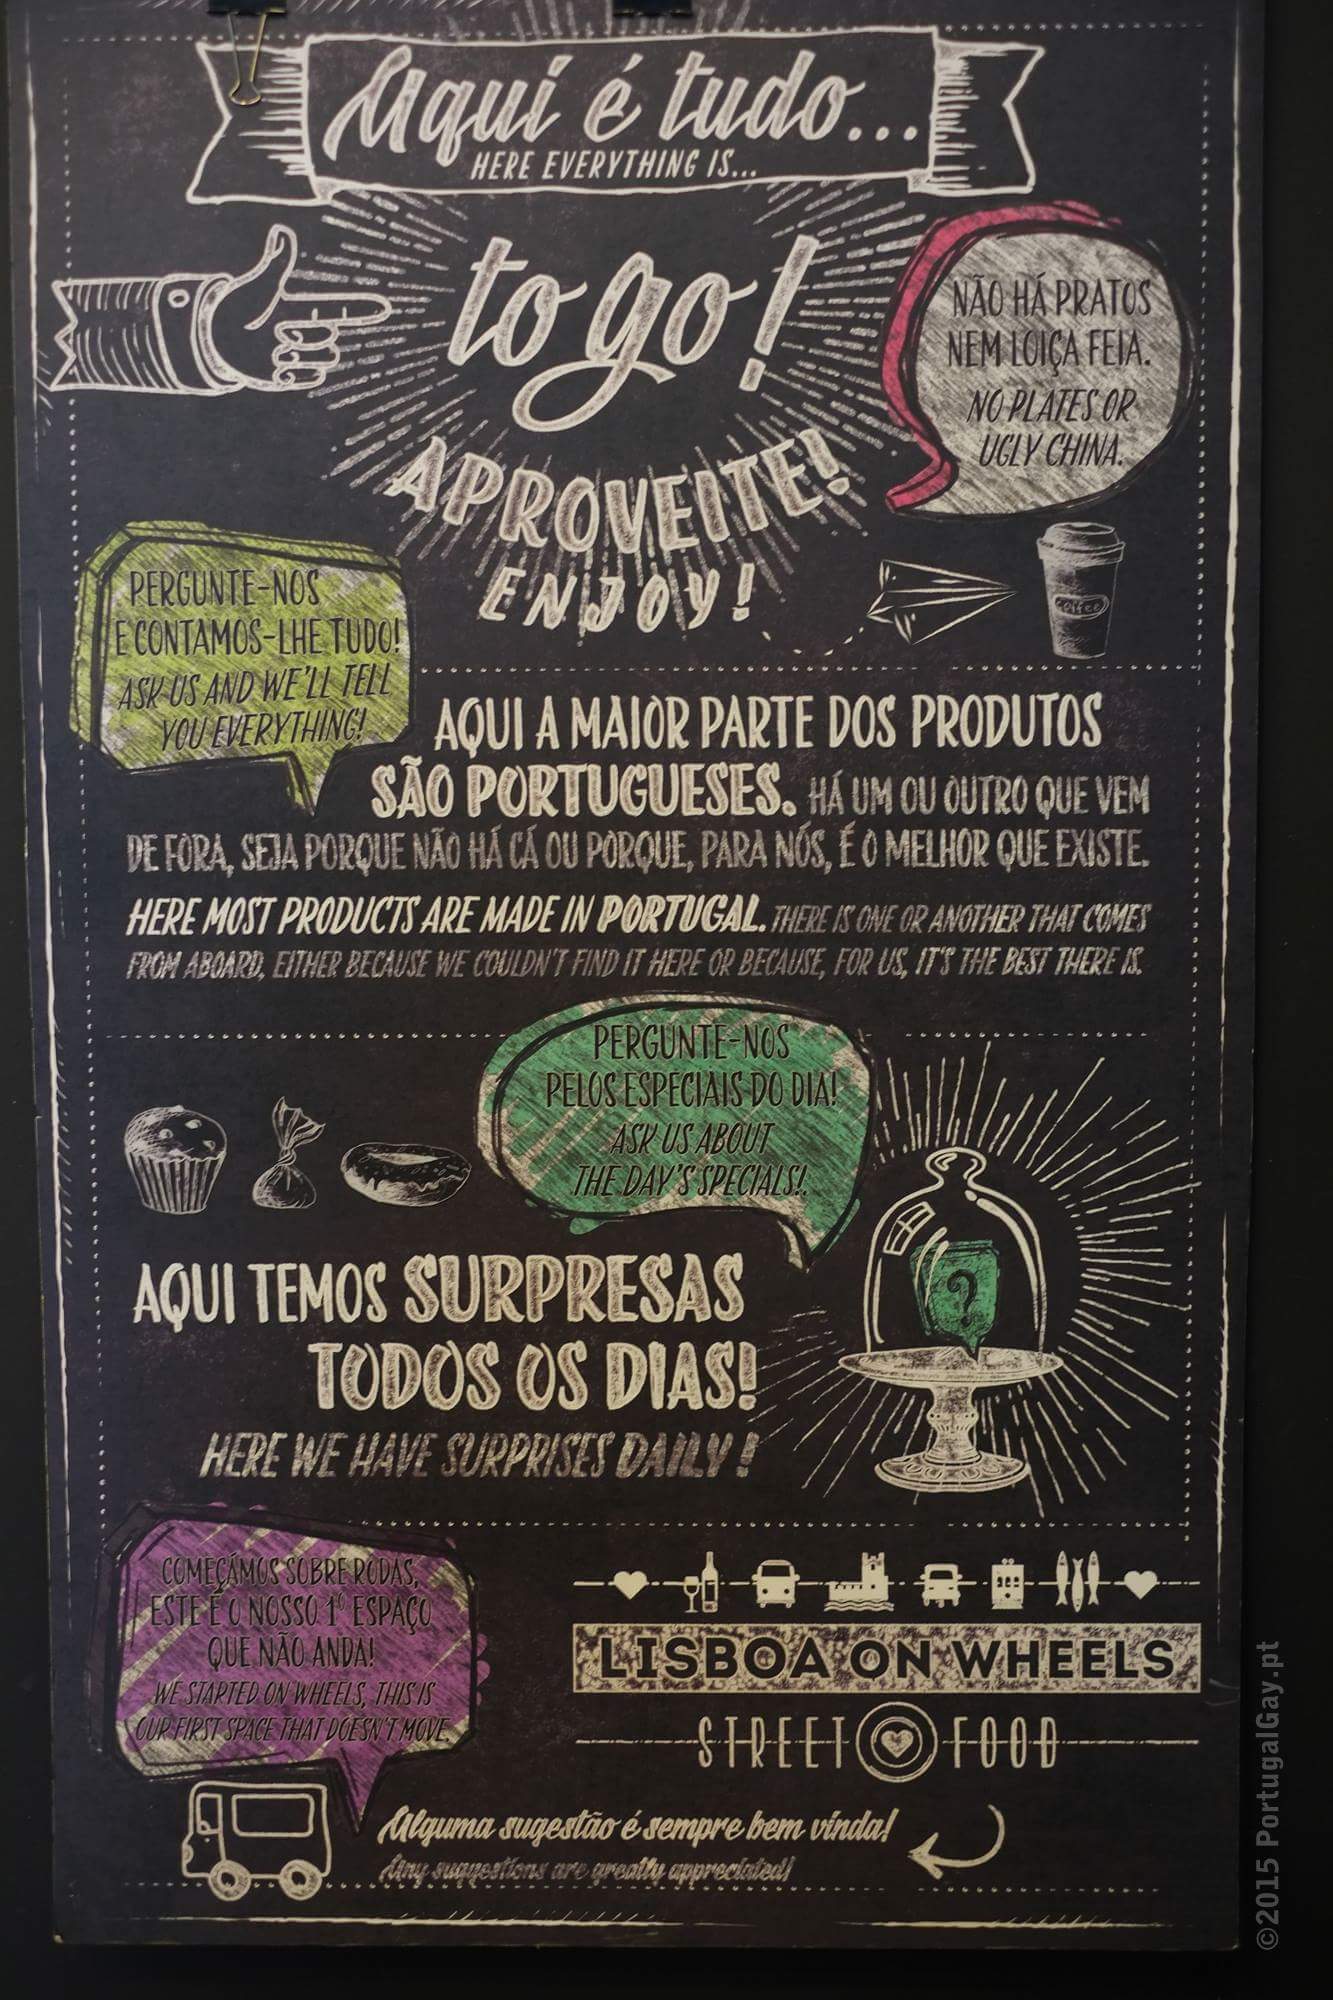 Aqui é tudo...
HERE EVERYTHING IS...
to go!
APROVEITE!
ENJOY!
NÃO HÁ PRATOS
NEM LOIÇA FEIA.
NO PLATES OR
UGLY CHINA.
coffee
PERGUNTE-NOS
E CONTAMOS-LHE TUDO!
ASK US AND WE'LL TELL
YOU EVERYTHING!
AQUI A MAIOR PARTE DOS PRODUTOS
SÃO PORTUGUESES. HÁ UM OU OUTRO QUE VEM
DE FORA, SEJA PORQUE NÃO HÁ CÁ OU PORQUE, PARA NÓS, É O MELHOR QUE EXISTE.
HERE MOST PRODUCTS ARE MADE IN PORTUGAL. THERE IS ONE OR ANOTHER THAT COMES
FROM ABOARD, EITHER BECAUSE WE COULDN'T FIND IT HERE OR BECAUSE, FOR US, IT'S THE BEST THERE IS.
PERGUNTE-NOS
PELOS ESPECIAIS DO DIA!
ASK US ABOUT
THE DAY'S SPECIALS!
?
AQUI TEMOS SURPRESAS
TODOS OS DIAS!
HERE WE HAVE SURPRISES DAILY!
COMEÇÁMOS SOBRE RODAS,
ESTE É O NOSSO 1º ESPAÇO
QUE NÃO ANDA!
WE STARTED ON WHEELS, THIS IS
OUR FIRST SPACE THAT DOESN'T MOVE.
LISBOA ON WHEELS
STREET FOOD
Alguma sugestão é sempre bem vinda!
Any suggestions are greatly appreciated!
©2015 PortugalGay.pt